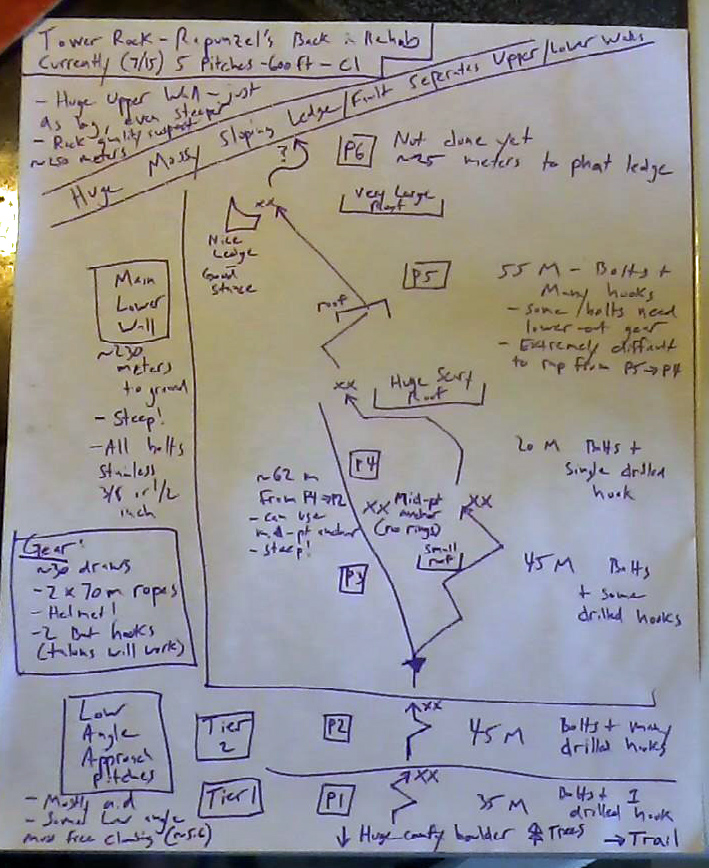 Tower Rock - Rapunzel's Back in Rehab
Currently (7/15) 5 Pitches - 600ft - C1
- Huge Upper Wall - just
as big, even steeper
- Rock quality suspect
~250 meters
Huge Mossy Sloping Ledge/Fault Seperates Upper/Lower Walls
?
P6
Not done yet
~25 meters to phat ledge
Very Large
Roof
xx
Nice
Ledge
Good
Stance
Main
Lower
Wall
~230
meters
to ground
- Steep!
- All bolts
Stainless
3/8 or 1/2
inch
P5
55 M - Bolts +
Many hooks
- some bolts need
lower-out gear
- Extremely difficult
to rap from P5→P4
roof
xx
Huge Scary
Roof
P4
20 M Bolts +
Single drilled
hook
~62 m
From P4→P2
- can use
mid-pt anchor
- steep!
xx Mid-pt
anchor
(no rings)
xx
small
roof
P3
45 M Bolts
+ some
drilled hooks
Gear:
~30 draws
- 2 x 70m ropes
- Helmet!
- 2 Bat hooks
(talons will work)
Low
Angle
Approach
pitches
- Mostly aid
- Some low angle
most free climbing (~5.6)
Tier
2
P2
xx
45 M
Bolts + many
drilled hooks
Tier 1
P1
xx
35 M
Bolts + 1
drilled hook
↓ Huge comfy boulder
Trees
→ Trail